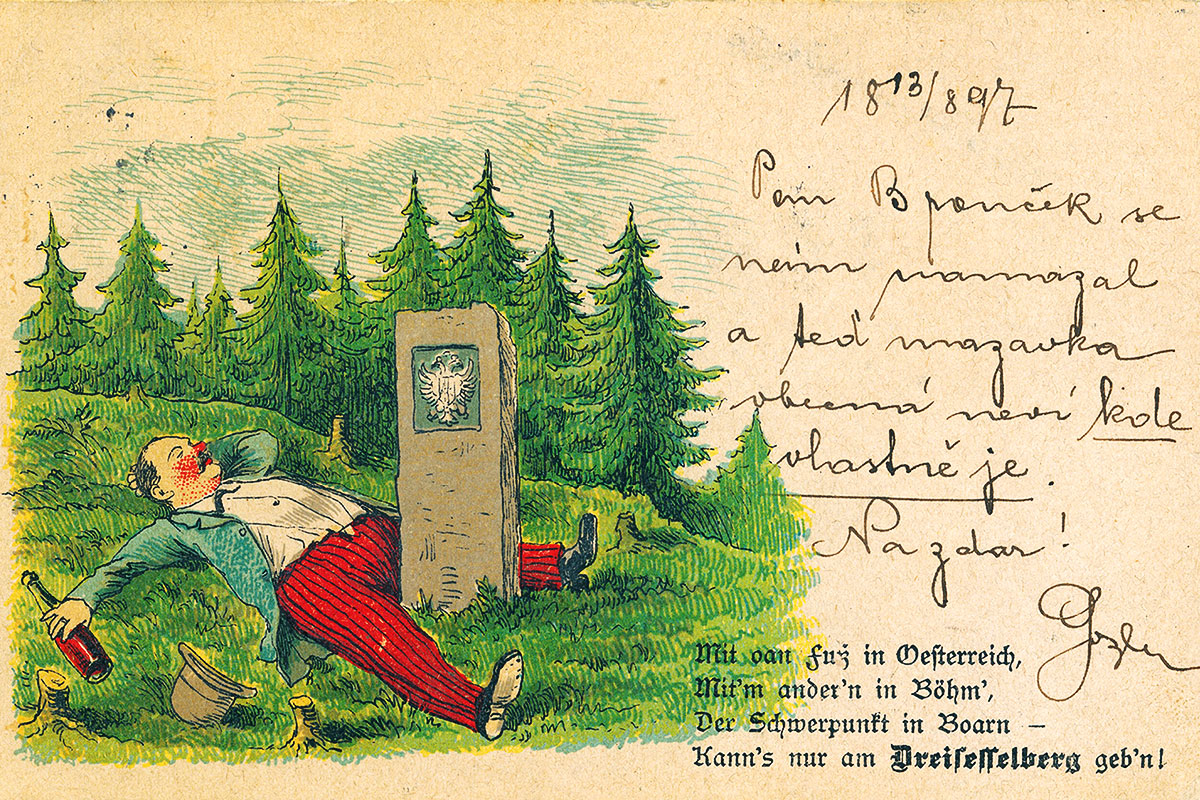 18 13/8 97
Pan Brouček se
nám namazal
a teď mazavka
obecná neví kde
vlastně je.
Nazdar!
Mit oan Fuß in Oesterreich,
Mit'm ander'n in Böhm',
Der Schwerpunkt in Boarn –
Kann's nur am Dreisesselberg geb'n!